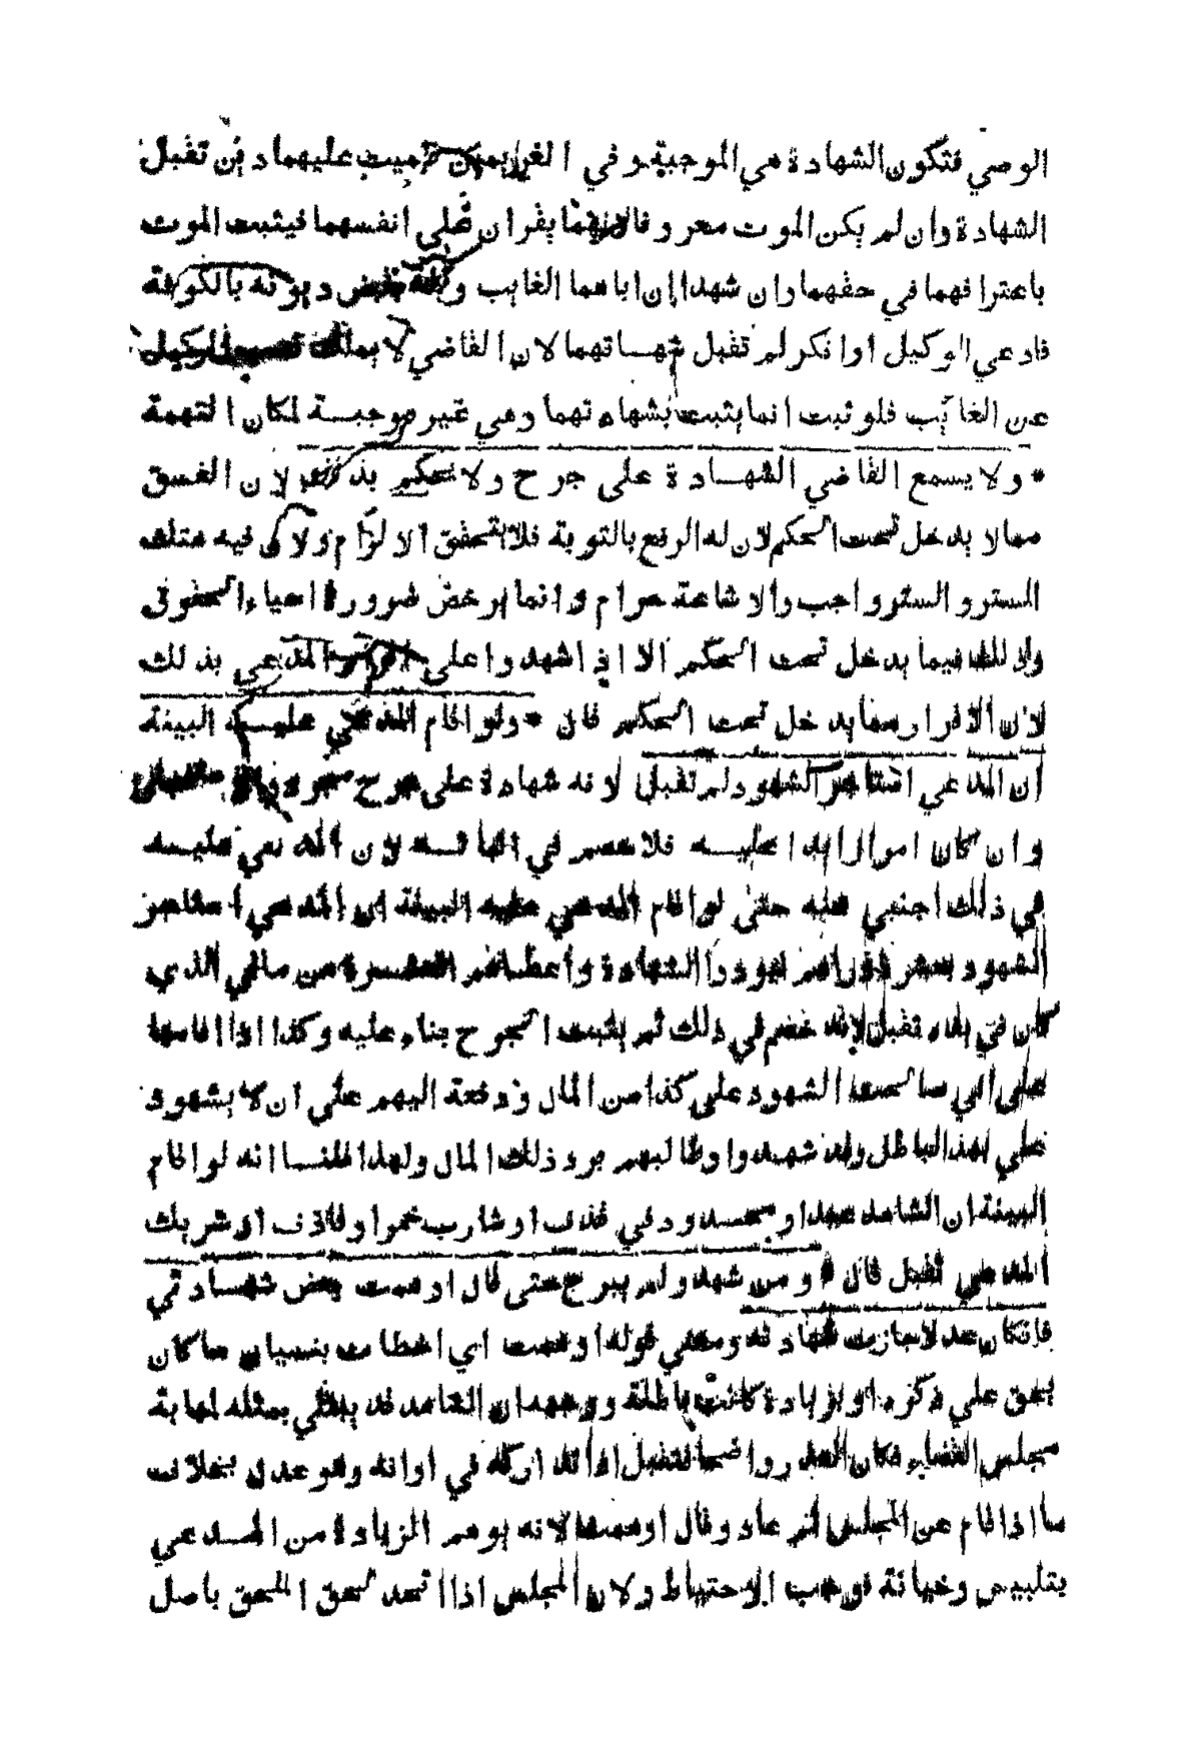 الوصي فتكون الشهادة هي الموجبة وفي الغريمين للميت عليهما دين تقبل
الشهادة وان لم يكن الموت معروفا لانهما يقران على انفسهما فيثبت الموت
باعترافهما في حقهما وان شهدا ان اباهما الغايب وكله بقبض ديونه بالكوفة
فادعي الوكيل او انكر لم تقبل شهادتهما لان القاضي لا يملك نصب الوكيل
عن الغايب فلو ثبت انما يثبت بشهادتهما وهي غير موجبة لمكان التهمة
* ولا يسمع القاضي الشهادة على جرح ولا يحكم بذلك لان الفسق
مما لا يدخل تحت الحكم لان له الرفع بالتوبة فلا يتحقق الالزام ولان فيه هتك
الستر و الستر واجب والاشاعة حرام وانما يرخص ضرورة احياء الحقوق
وذلك فيما يدخل تحت الحكم الا اذا شهدوا على اقرار المدعي بذلك
لان الاقرار مما يدخل تحت الحكم قال * ولو اقام المدعي عليه البينة
ان المدعي استاجر الشهود لم تقبل لانه شهادة على جرح مجرد
وان كان امرا زايدا عليه فلا خصم في اثباته لان المدعي عليه
في ذلك اجنبي عنه حتى لو اقام المدعي عليه البينة ان المدعي استاجر
الشهود بعشرة دراهم ليودوا الشهادة واعطاهم العشرة من مالي الذي
كان في يده تقبل لانه خصم في ذلك ثم يثبت الجرح بناء عليه وكذا اذا اقامها
على اني صالحت الشهود على كذا من المال ودفعته اليهم على ان لا يشهدوا
علي بهذا الباطل وقد شهدوا وطالبهم برد ذلك المال ولهذا قلنا انه لو اقام
البينة ان الشاهد عبد او محدود في قذف او شارب خمر او قاذف او شريك
المدعي تقبل قال * ومن شهد ولم يبرح حتى قال اوهمت بعض شهادتي
فان كان عدلا جازت شهادته ومعني قوله اوهمت اي اخطات بنسيان ما كان
يحق علي ذكره او بزيادة كانت باطلة ووجهه ان الشاهد قد يبتلي بمثله لمهابة
مجلس القضاء فكان العذر واضحا فتقبل اذا تداركه في اوانه وهو عدل بخلاف
ما اذا قام عن المجلس ثم عاد وقال اوهمت لانه يوهم الزيادة من المدعي
بتلبيس وخيانة فوجب الاحتياط ولان المجلس اذا اتحد لحق الملحق باصل